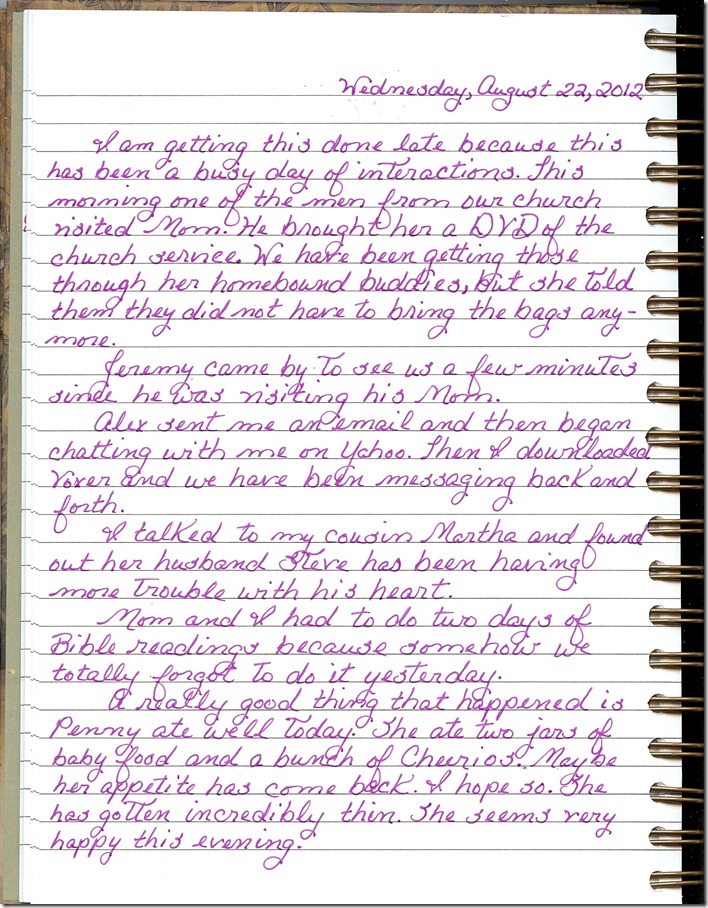 Wednesday, August 22, 2012
I am getting this done late because this
has been a busy day of interactions. This
morning one of the men from our church
visited Mom. He brought her a DVD of the
church service. We have been getting those
through her homebound buddies, but she told
them they did not have to bring the bags any-
more.
Jeremy came by to see us a few minutes
since he was visiting his Mom.
Alex sent me an email and then began
chatting with me on Yahoo. Then I downloaded
Voxer and we have been messaging back and
forth.
I talked to my cousin Martha and found
out her husband Steve has been having
more trouble with his heart.
Mom and I had to do two days of
Bible readings because somehow we
totally forgot to do it yesterday.
A really good thing that happened is
Penny ate well today. She ate two jars of
baby food and a bunch of Cheerios. Maybe
her appetite has come back. I hope so. She
has gotten incredibly thin. She seems very
happy this evening.